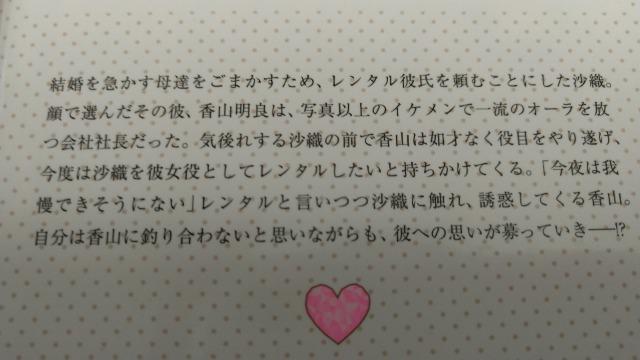 結婚を急かす母達をごまかすため、レンタル彼氏を頼むことにした沙織。
顔で選んだその彼、香山明良は、写真以上のイケメンで一流のオーラを放
つ会社社長だった。気後れする沙織の前で香山は如才なく役目をやり遂げ、
今度は沙織を彼女役としてレンタルしたいと持ちかけてくる。「今夜は我
慢できそうにない」レンタルと言いつつ沙織に触れ、誘惑してくる香山。
自分は香山に釣り合わないと思いながらも、彼への思いが募っていき──!?